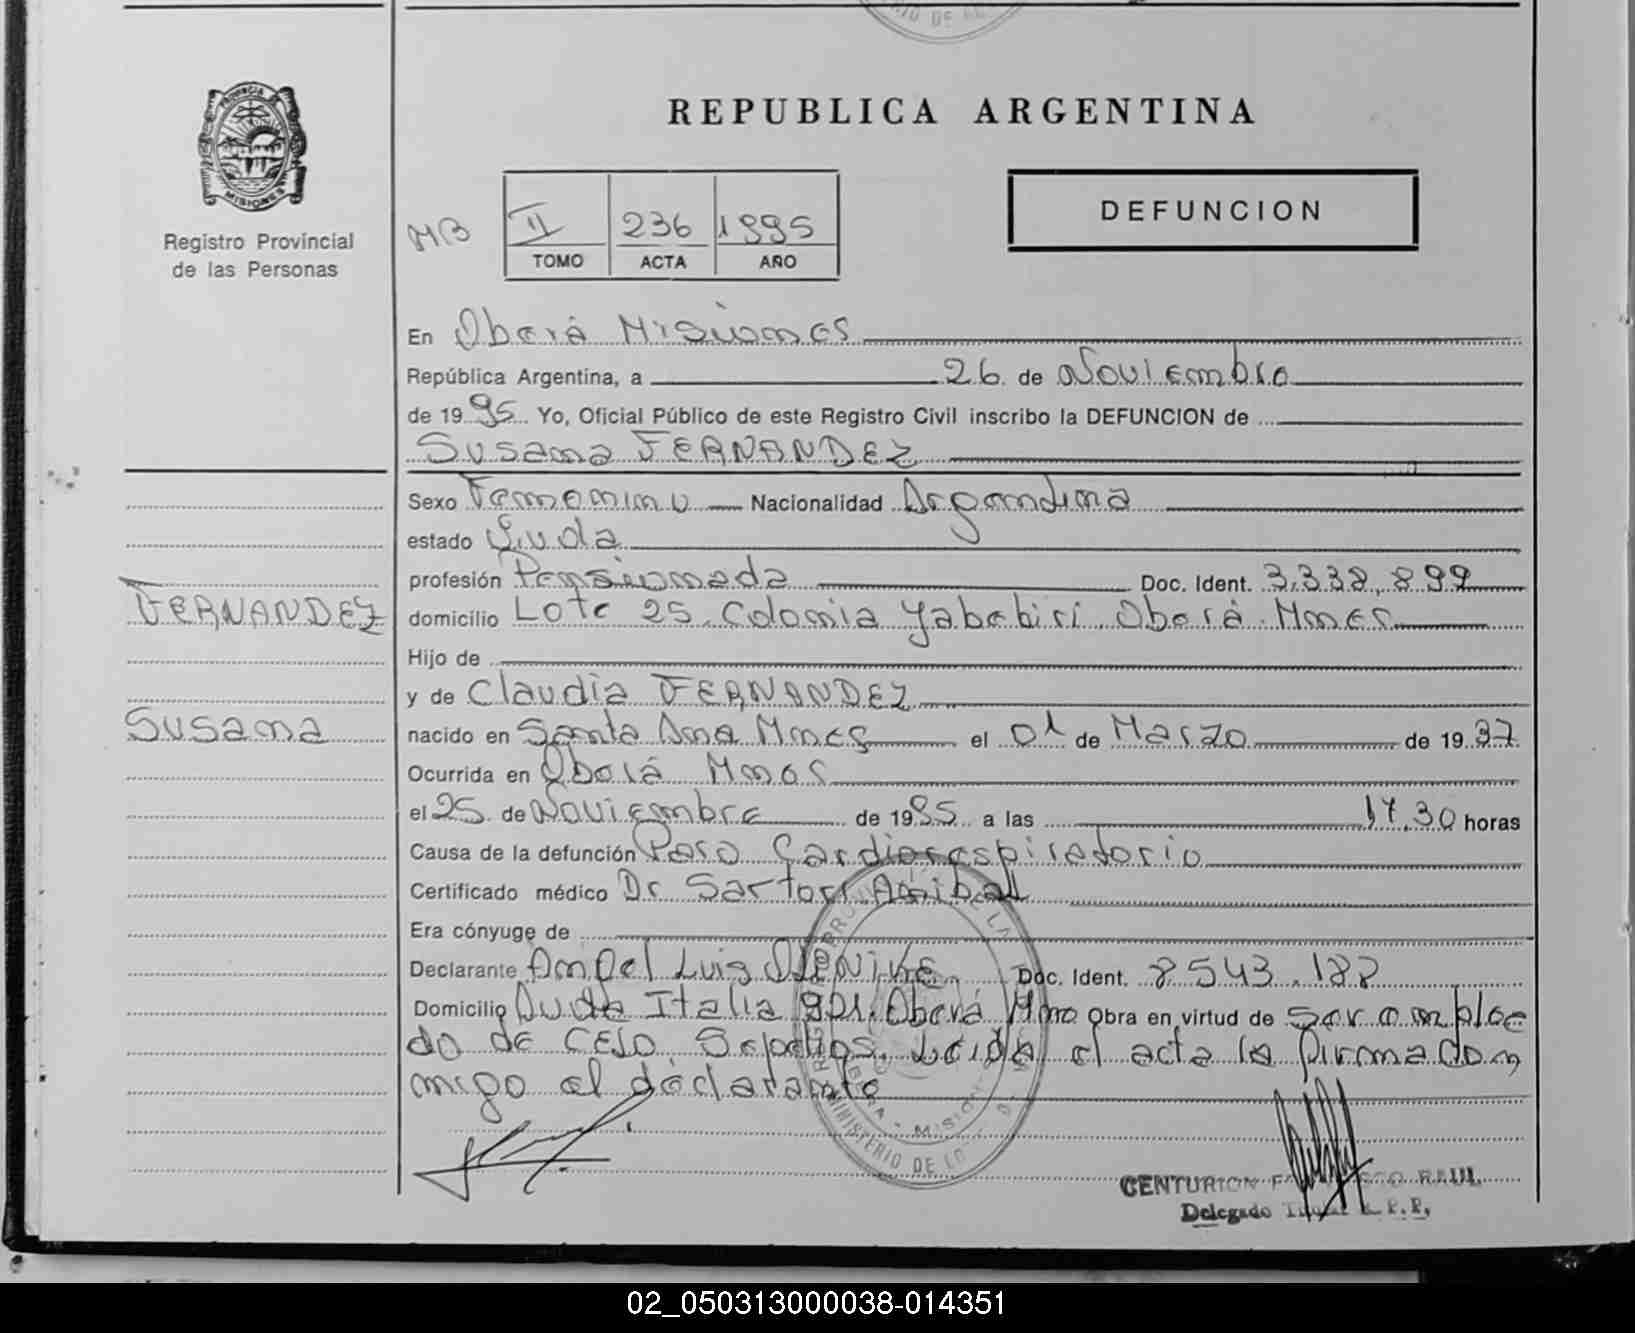 PROVINCIA DE
MISIONES
Registro Provincial
de las Personas
REPUBLICA ARGENTINA
MB
II 236 1995
TOMO ACTA AÑO
DEFUNCION
En Oberá Misiones
República Argentina, a 26 de Noviembre
de 19 95 Yo, Oficial Público de este Registro Civil inscribo la DEFUNCION de
Susana FERNANDEZ
Sexo Femenino Nacionalidad Argentina
estado Viuda
profesión Pensionada Doc. Ident. 3.338.899
FERNANDEZ
domicilio Lote 25. Colonia Yabebirí. Oberá. Mnes
Hijo de
y de Claudia FERNANDEZ
Susana
nacido en Santa Ana Mnes el 01 de Marzo de 19 37
Ocurrida en Oberá Mnes
el 25 de Noviembre de 19 95 a las 17.30 horas
Causa de la defunción Paro Cardiorespiratorio
Certificado médico Dr. Sartori Anibal
Era cónyuge de
Declarante Angel Luis Doc. Ident. 8543.188
Domicilio Avda Italia 901. Oberá Mnes Obra en virtud de Ser emplea
do de CELO Sepelios. Leída el acta la firmadon
migo el declarante
MINISTERIO DE
MISION
CENTURION RAUL
Delegado R.P.P.
02_050313000038-014351